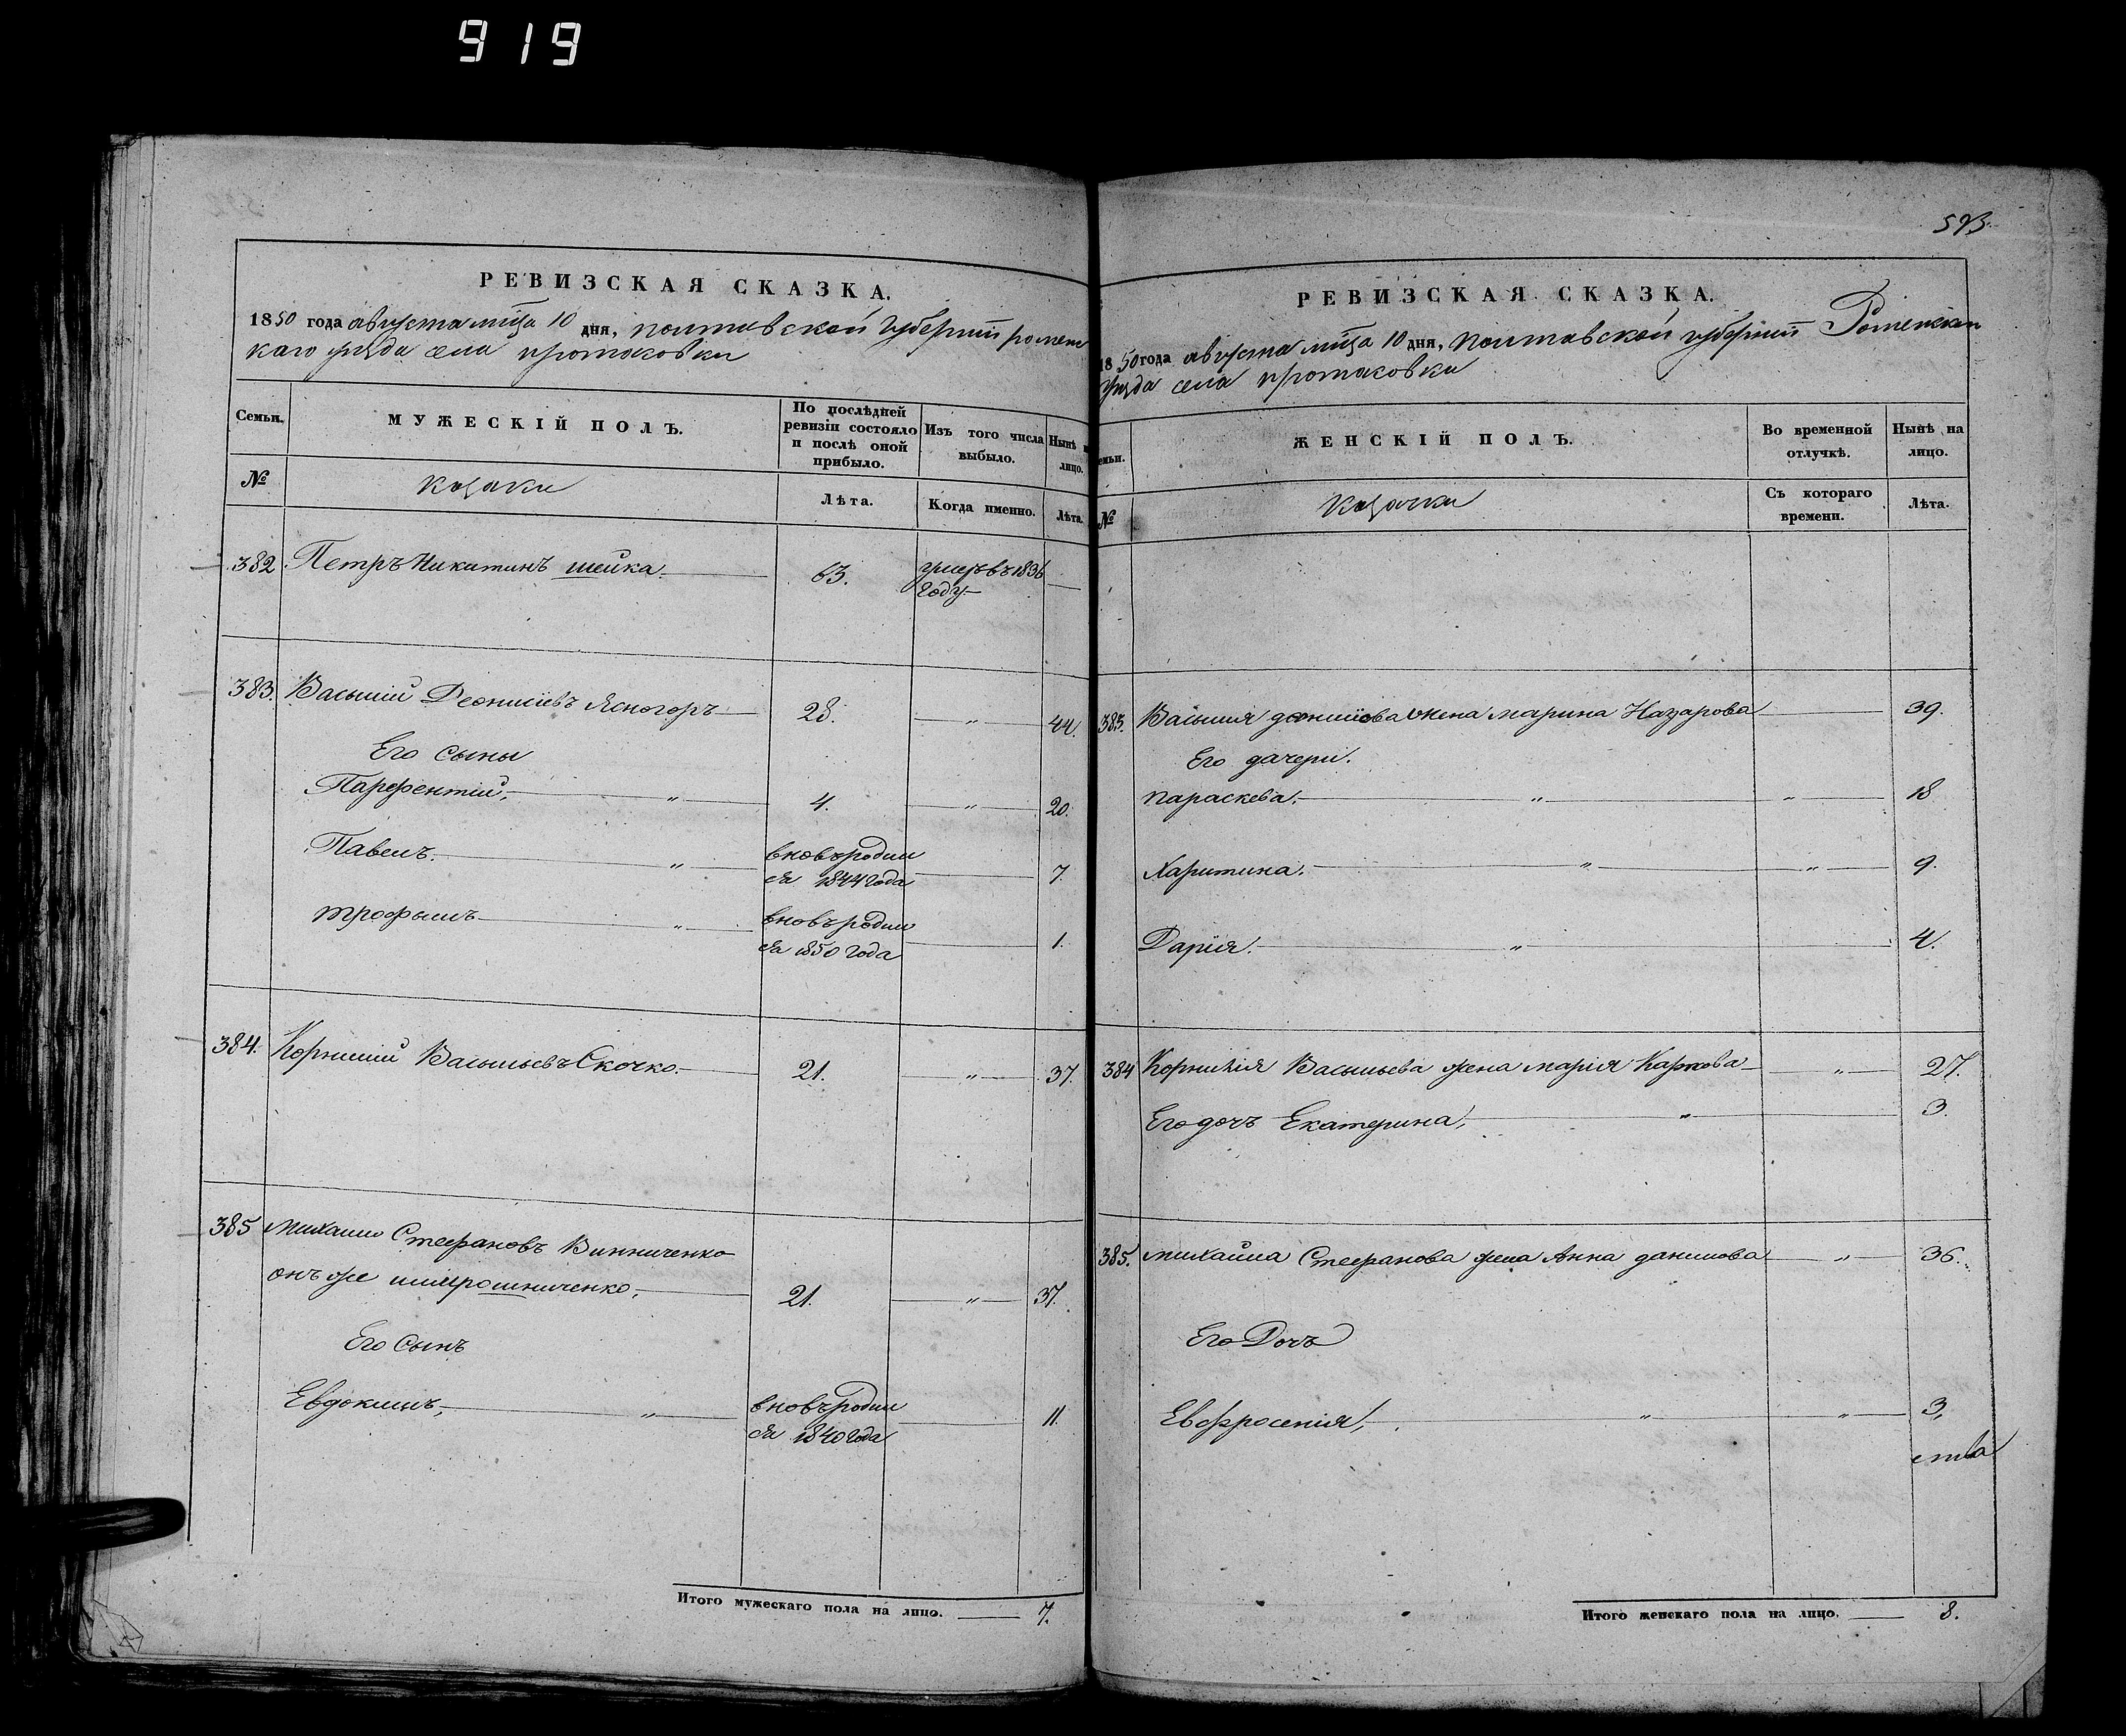 919
РЕВИЗСКАЯ СКАЗКА.
1850 года августа мца 10 дня, полтавской губернiи ромен
каго уезда села протасовки
Семьи.
МУЖЕСКІЙ ПОЛЪ.
По послѣдней
ревизіи состояло
и послѣ оной
прибыло.
Изъ того числа
выбыло.
Нынѣ н
лицо.
№
козаки
Лѣта.
Когда именно.
Лѣта.
382 Петръ Никитинъ шейка. 63. умеръ въ 1836
году
383. Василiй Деонисiевъ Ясногоръ 28. " 44.
Его сыны
Парфентiй, " 4. " 20.
Павелъ. " вновь родил
ся 1844 года 7.
трофымъ " вновь родил
ся 1850 года 1.
384. Корнилiй Васильевъ Скочко. 21. " 37.
385 михаилъ Стефановъ Винниченко
онъ же мирошниченко, 21. " 37.
Его сынъ
Евдокимъ, " вновь родил
ся 1840 года 11.
Итого мужескаго пола на лицо. 7.
РЕВИЗСКАЯ СКАЗКА.
1850 года августа мца 10 дня, полтавской губернiи Роменскаго
уезда села протасовки
емьи.
ЖЕНСКІЙ ПОЛЪ.
Во временной
отлучкѣ.
Нынѣ на
лицо.
№
козачки
Съ котораго
времени.
Лѣта.
383. Василия деонисiева жена марина Назарова 39.
Его дачери.
параскева. " " 18
Харитина. " " 9.
Дарiя. " 4.
384 Корнилiя Васильева жена марiя Карпова " 27.
Его дочъ Екатерина, " 3.
385. михайла Стефанова жена Анна данилова " 36.
Его Дочъ
Евфросенiя, " " 3,
Итого женскаго пола на лицо. 8.